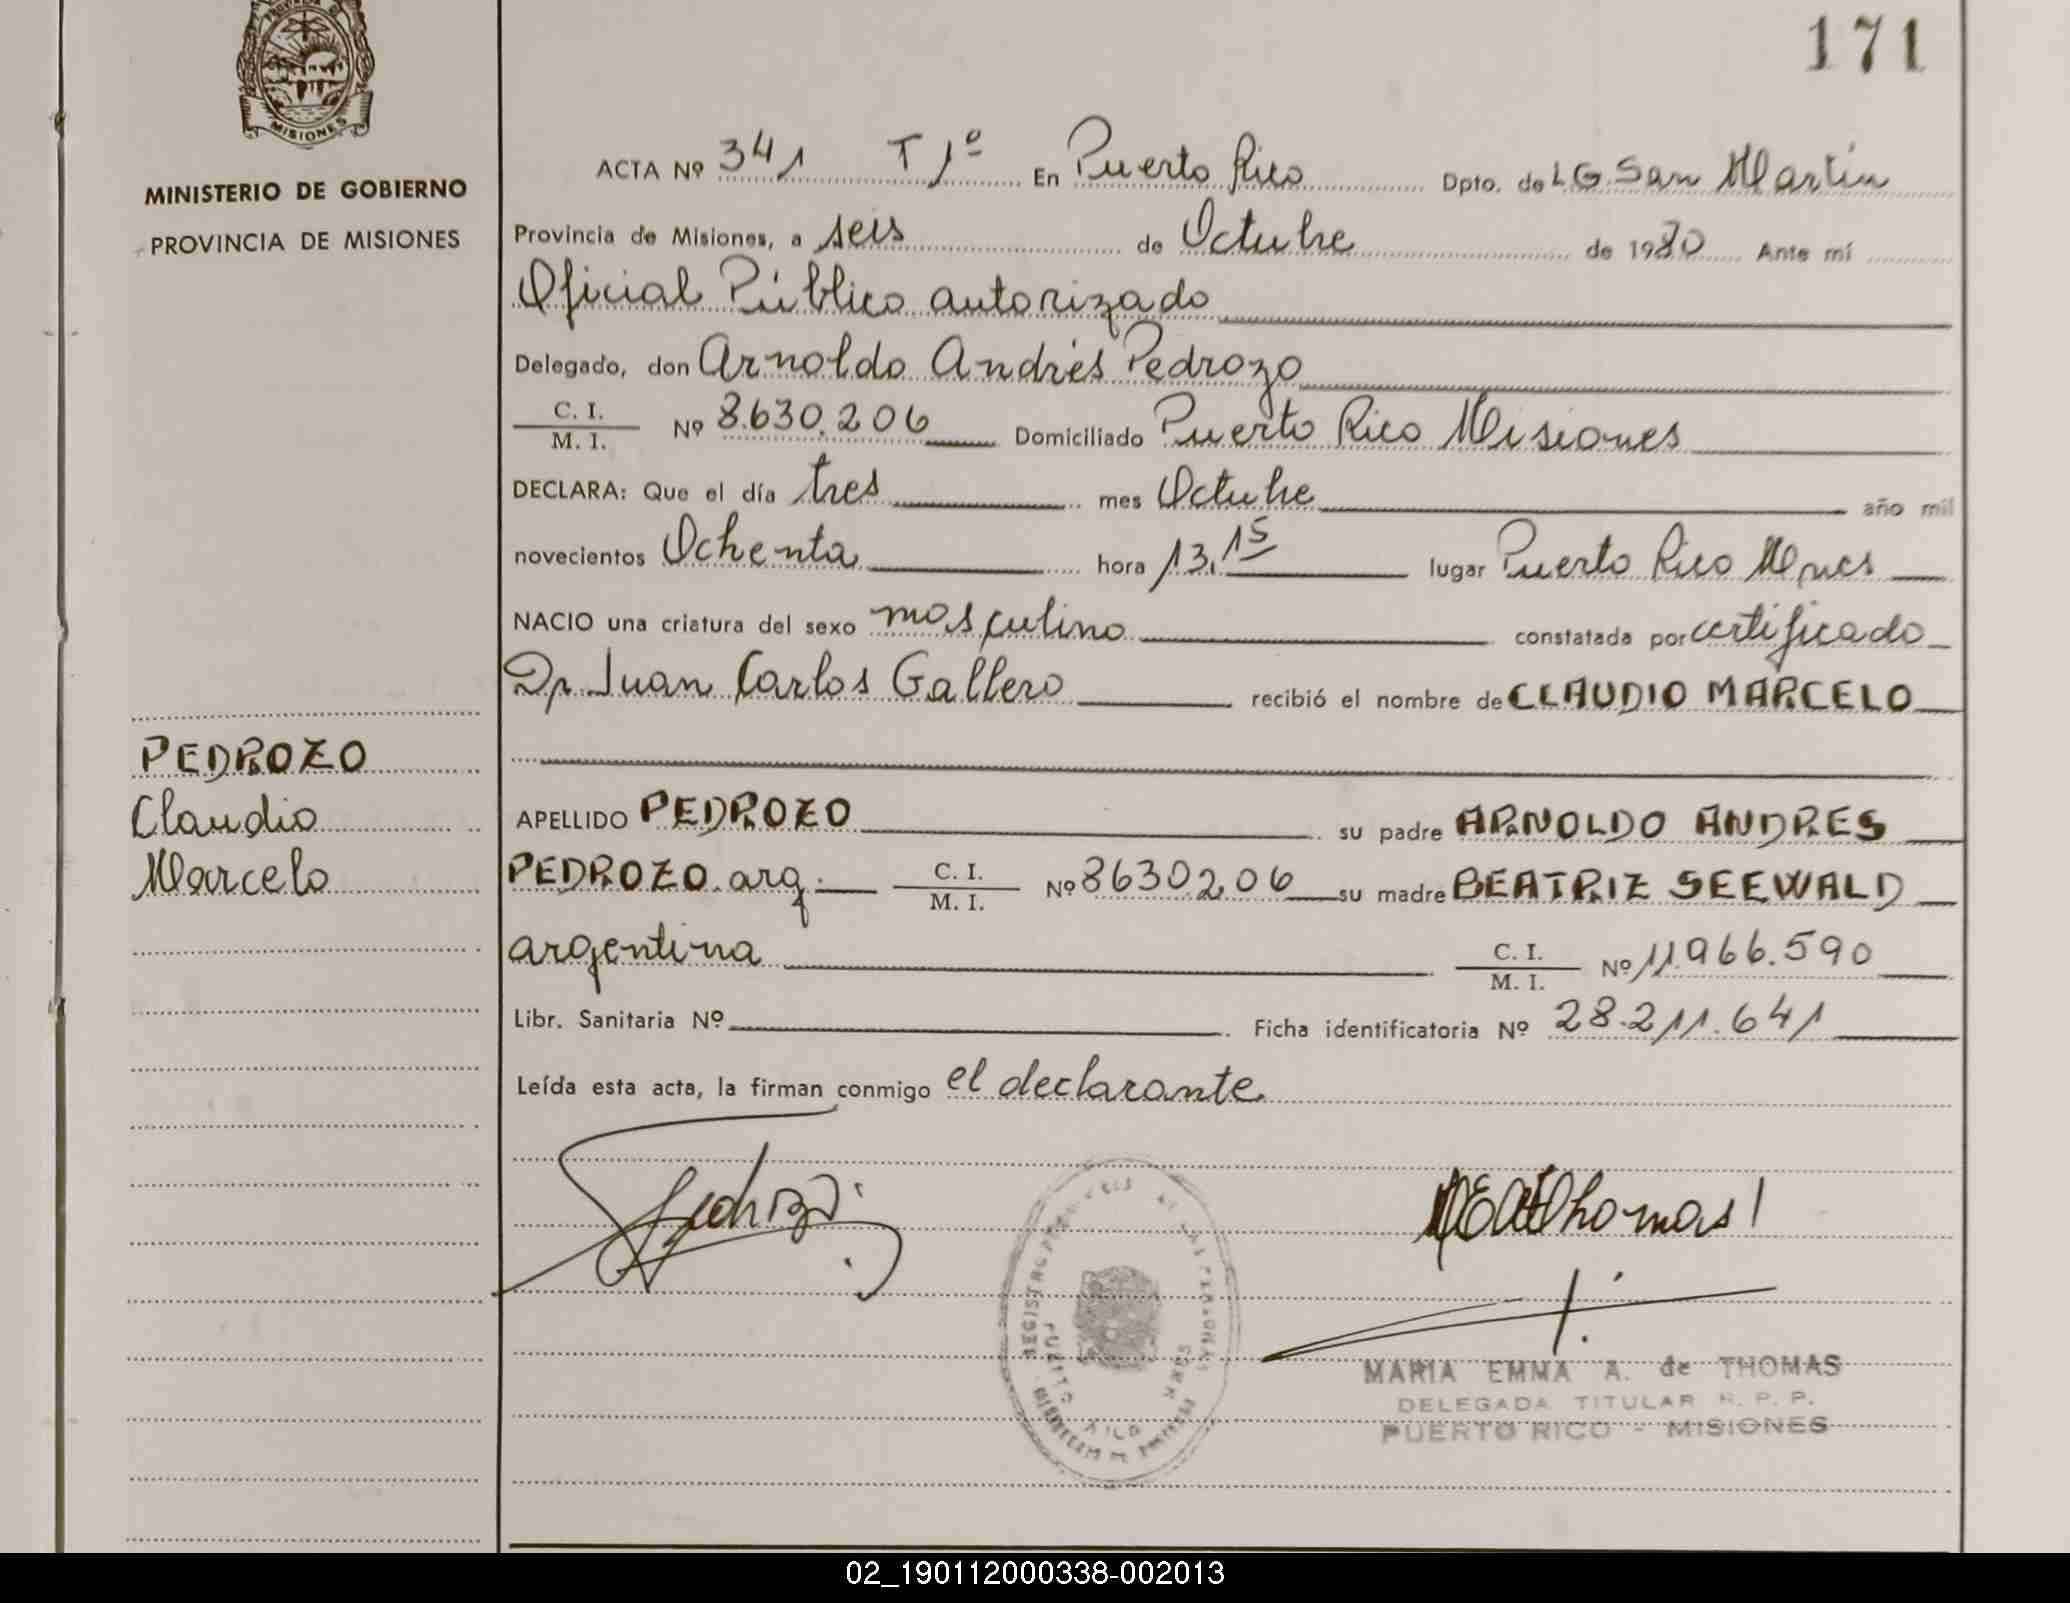 171
MISIONES
MINISTERIO DE GOBIERNO
PROVINCIA DE MISIONES
PEDROZO
Claudio
Marcelo
ACTA Nº 341 T 1º En Puerto Rico Dpto. de L G San Martín
Provincia de Misiones, a seis de Octubre de 1980 Ante mí
Oficial Público autorizado
Delegado, don Arnoldo Andrés Pedrozo
C. I.
M. I. Nº 8.630.206 Domiciliado Puerto Rico Misiones
DECLARA: Que el día tres mes Octubre año mil
novecientos Ochenta hora 13,15 lugar Puerto Rico Mnes
NACIO una criatura del sexo masculino constatada por certificado
Dr Juan Carlos Gallero recibió el nombre de CLAUDIO MARCELO
APELLIDO PEDROZO su padre ARNOLDO ANDRES
PEDROZO arg. C. I.
M. I. Nº 8630206 su madre BEATRIZ SEEWALD
argentina C. I.
M. I. Nº 11.966.590
Libr. Sanitaria Nº Ficha identificatoria Nº 28.211.641
Leída esta acta, la firman conmigo el declarante
MARIA EMMA A. de THOMAS
DELEGADA TITULAR R. P. P.
PUERTO RICO - MISIONES
02_190112000338-002013